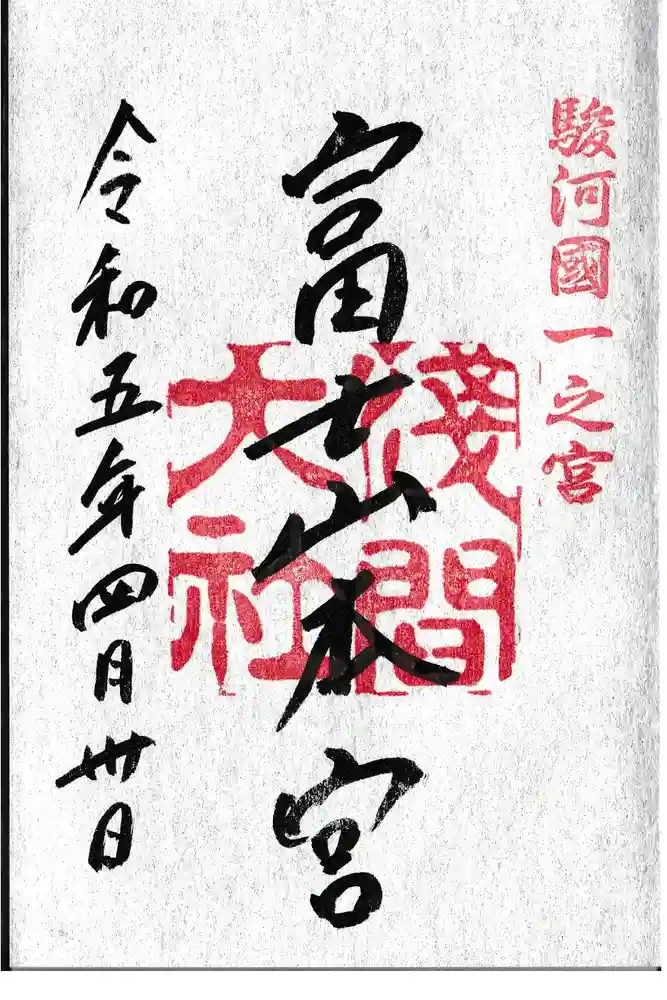 駿河國一之宮
冨士山本宮
淺間
大社
令和五年四月卅日